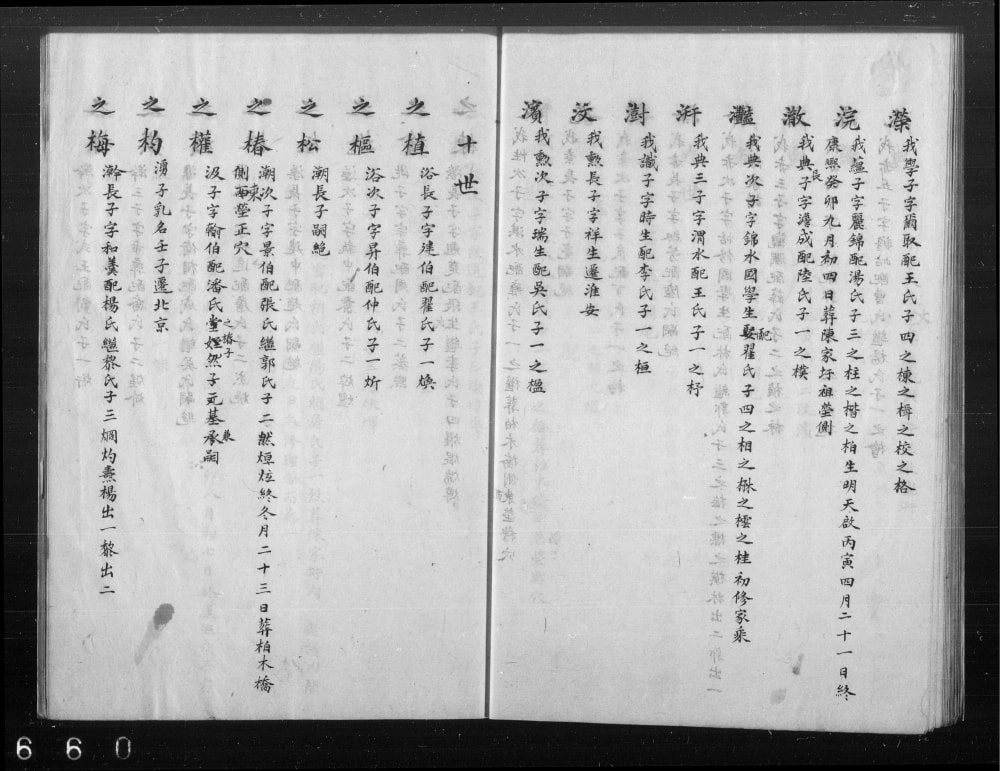 濴 我學子字爾取配王氏子四之棟之楫之校之格
浣 我蘊子字麗錦配湯氏子三之柱之楷之柏生明天啟丙寅四月二十一日終
康熙癸卯九月初四日葬陳家圩祖塋側
澈 我典長子字澹成配陸氏子一之樸
灩 我典次子字錦水國學生配翟氏子四之相之楙之檽之桂初修家乘
汧 我典三子字渭水配王氏子一之杼
澍 我議子字時生配李氏子一之桓
汶 我勲長子字祥生遷淮安
濱 我勲次子字瑞生配吳氏子一之楹
十世
之植 浴長子字建伯配翟氏子一煥
之樞 浴次子字昇伯配仲氏子一炘
之松 潮長子嗣絕
之椿 潮次子字景伯配張氏繼郭氏子二然烜炫終冬月二十三日葬柏木橋
側東西塋正穴
之權 汲子字翰伯配潘氏堂姪然之椿子子元基兼承嗣
之杓 湧子乳名壬子遷北京
之梅 瀚長子字和羹配楊氏繼黎氏子三烱灼燾楊出一黎出二
660